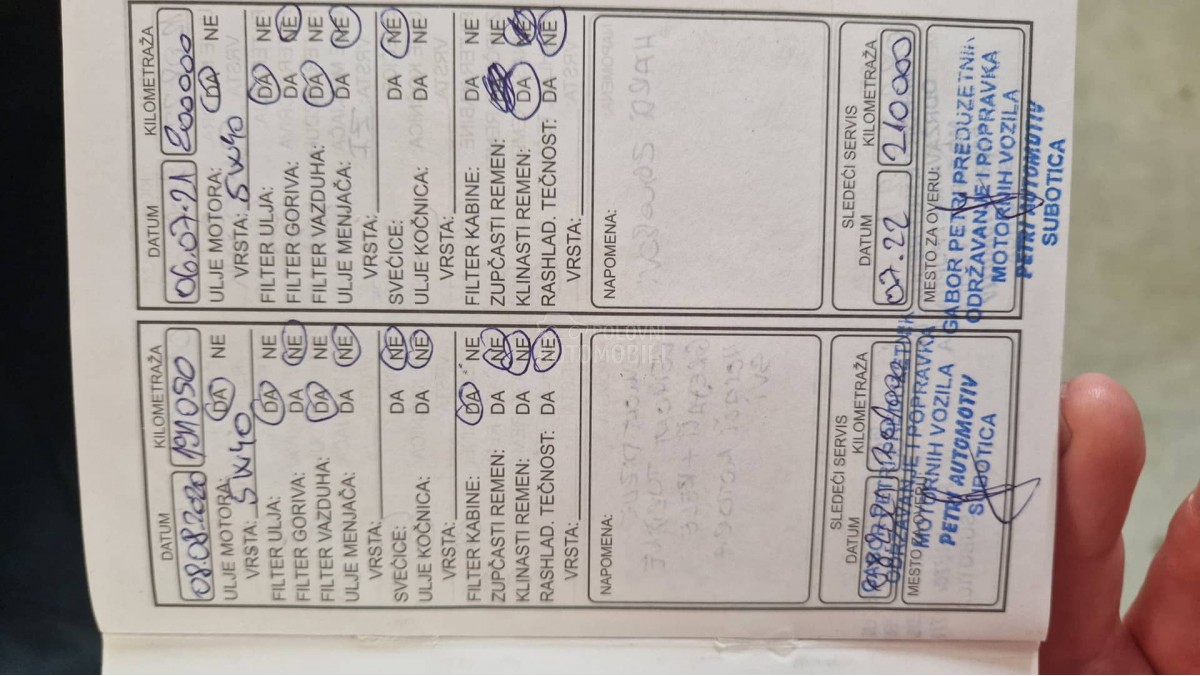 DATUM KILOMETRAŽA
08.08.2020 191050
ULJE MOTORA: DA NE
VRSTA: 5W40
FILTER ULJA: DA NE
FILTER GORIVA: DA NE
FILTER VAZDUHA: DA NE
ULJE MENJAČA: DA NE
VRSTA:
SVEĆICE: DA NE
ULJE KOČNICA: DA NE
VRSTA:
FILTER KABINE: DA NE
ZUPČASTI REMEN: DA NE
KLINASTI REMEN: DA NE
RASHLAD. TEČNOST: DA NE
VRSTA:
NAPOMENA:
SLEDEĆI SERVIS
DATUM KILOMETRAŽA
MESTO ZA OVERU:
ODRŽAVANJE I POPRAVKA
MOTORNIH VOZILA
PETRI AUTOMOTIV
SUBOTICA
DATUM KILOMETRAŽA
06.07.21 200000
ULJE MOTORA: DA NE
VRSTA: 5W40
FILTER ULJA: DA NE
FILTER GORIVA: DA NE
FILTER VAZDUHA: DA NE
ULJE MENJAČA: DA NE
VRSTA:
SVEĆICE: DA NE
ULJE KOČNICA: DA NE
VRSTA:
FILTER KABINE: DA NE
ZUPČASTI REMEN: DA NE
KLINASTI REMEN: DA NE
RASHLAD. TEČNOST: DA NE
VRSTA:
NAPOMENA:
SLEDEĆI SERVIS
DATUM KILOMETRAŽA
07.22 210000
MESTO ZA OVERU:
GABOR PETRI PREDUZETNIK
ODRŽAVANJE I POPRAVKA
MOTORNIH VOZILA
PETRI AUTOMOTIV
SUBOTICA